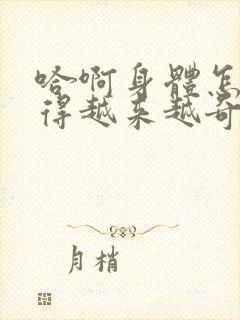 哈啊身體怎
得越来越奇
月梢